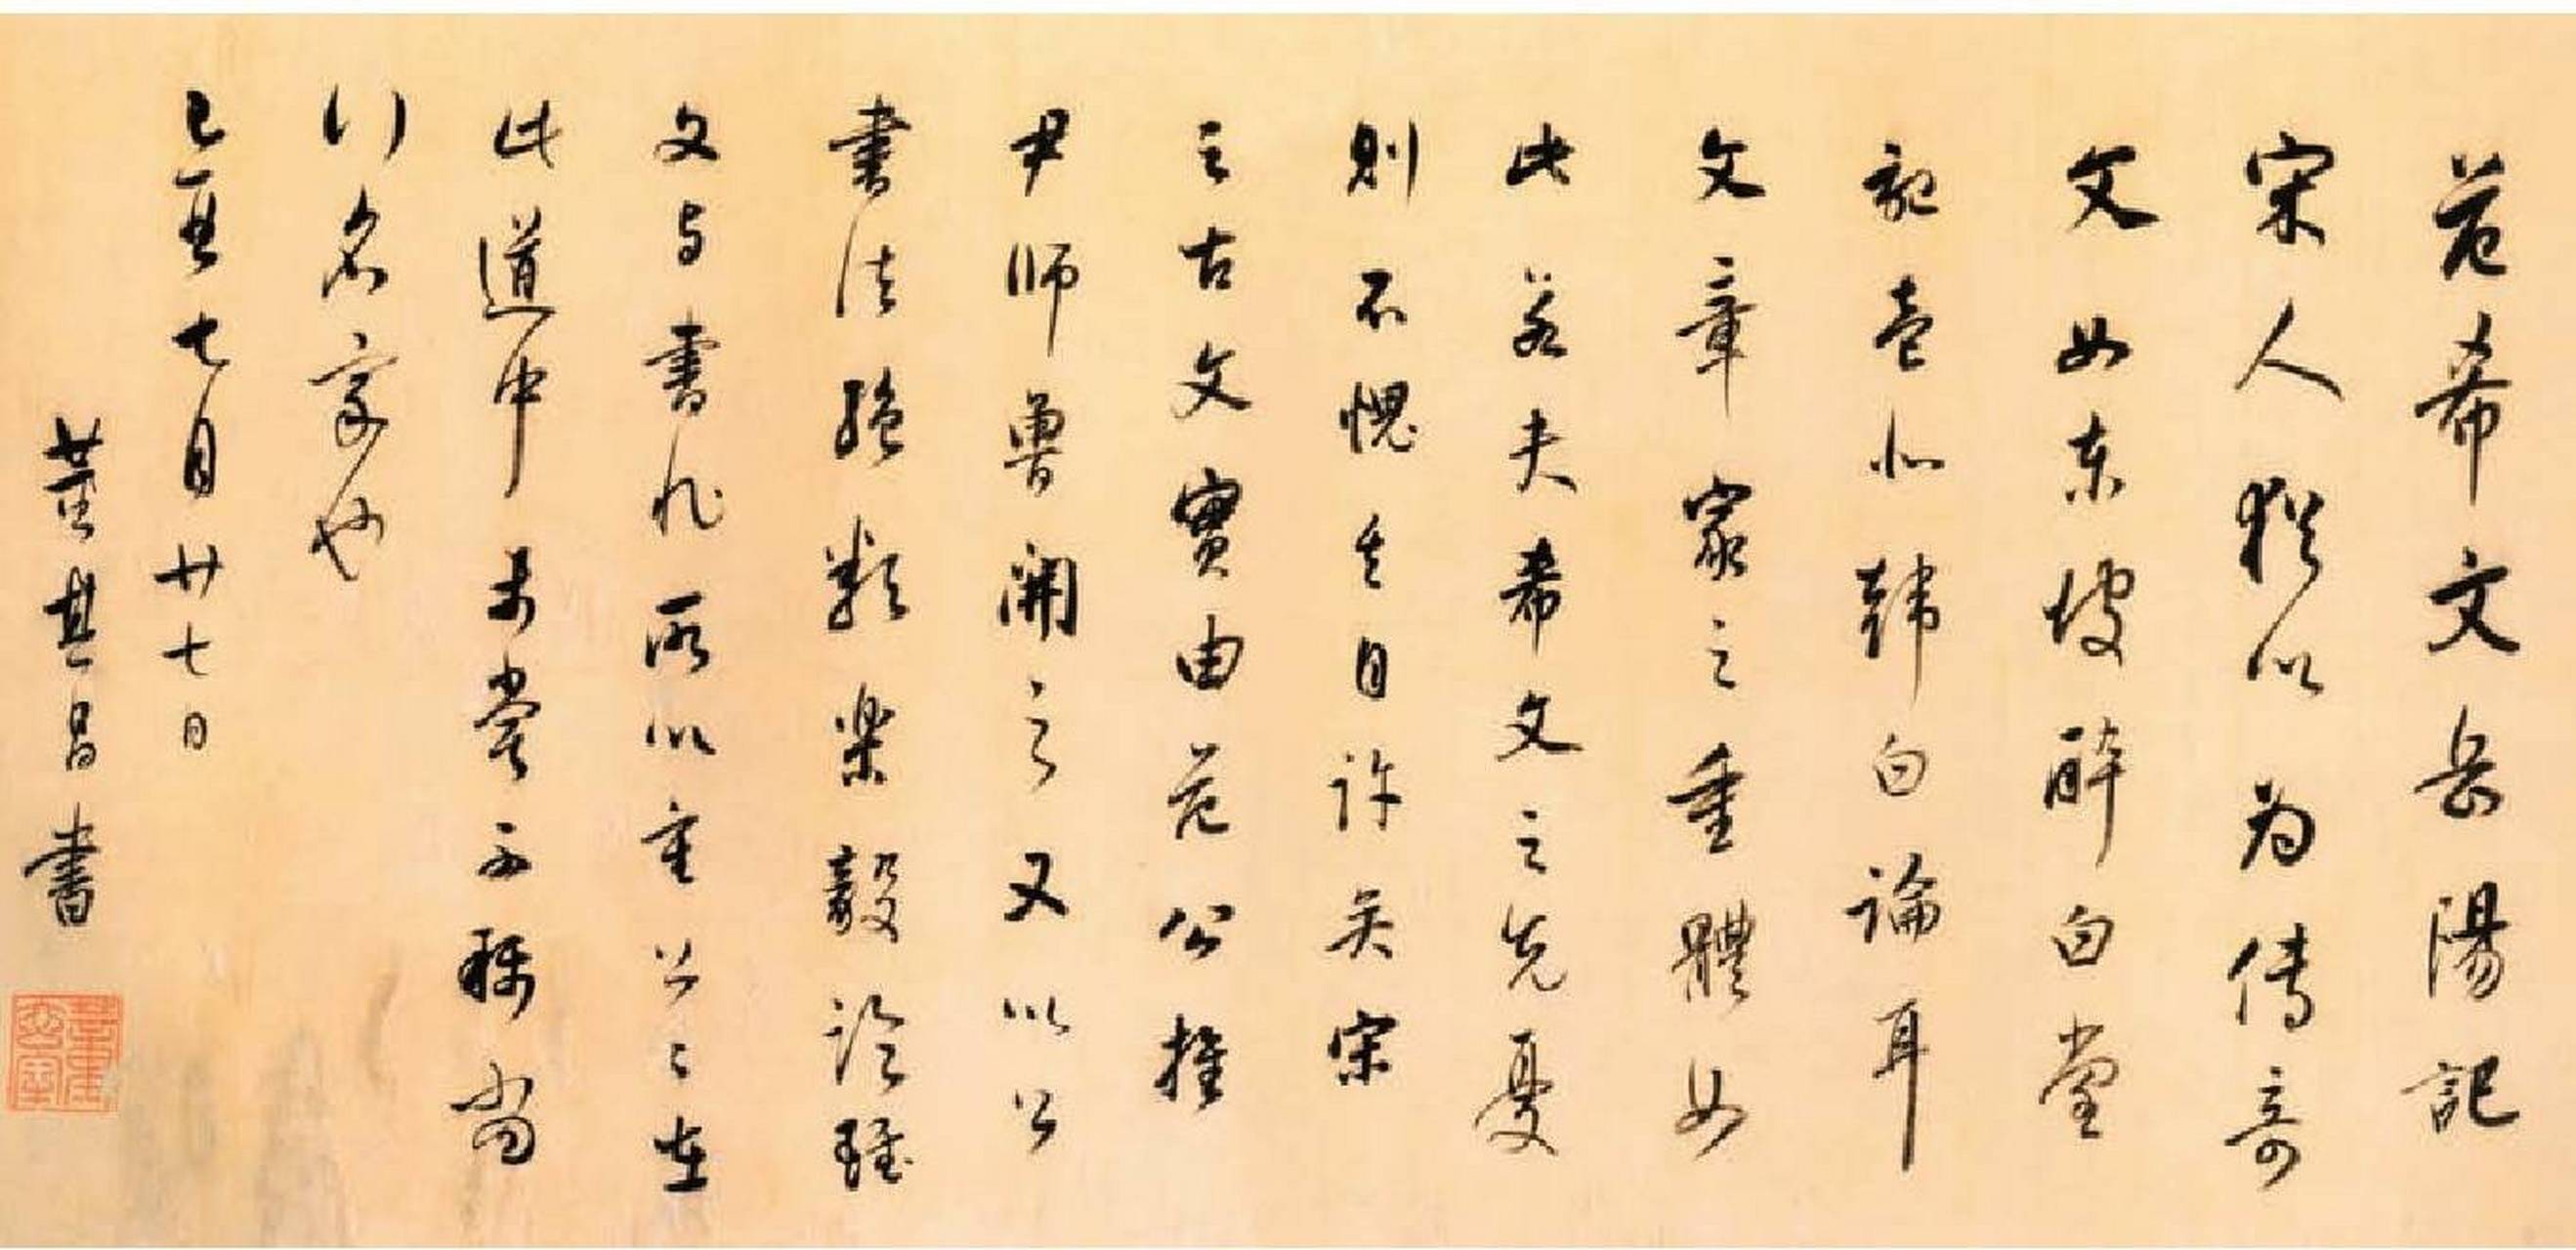 范希文岳陽記
宋人猶以为傳奇
文如東坡醉白堂
記壹似韓白論耳
文章家之重體如
此若夫希文之先憂
則不愧其自許矣宋
之古文實由范公推
尹師魯開之又以公
書法絕類樂毅論雖
文与書非所以重公〻在
此道中未嘗不稱當
行名家也
己亥七月廿七日
董其昌書